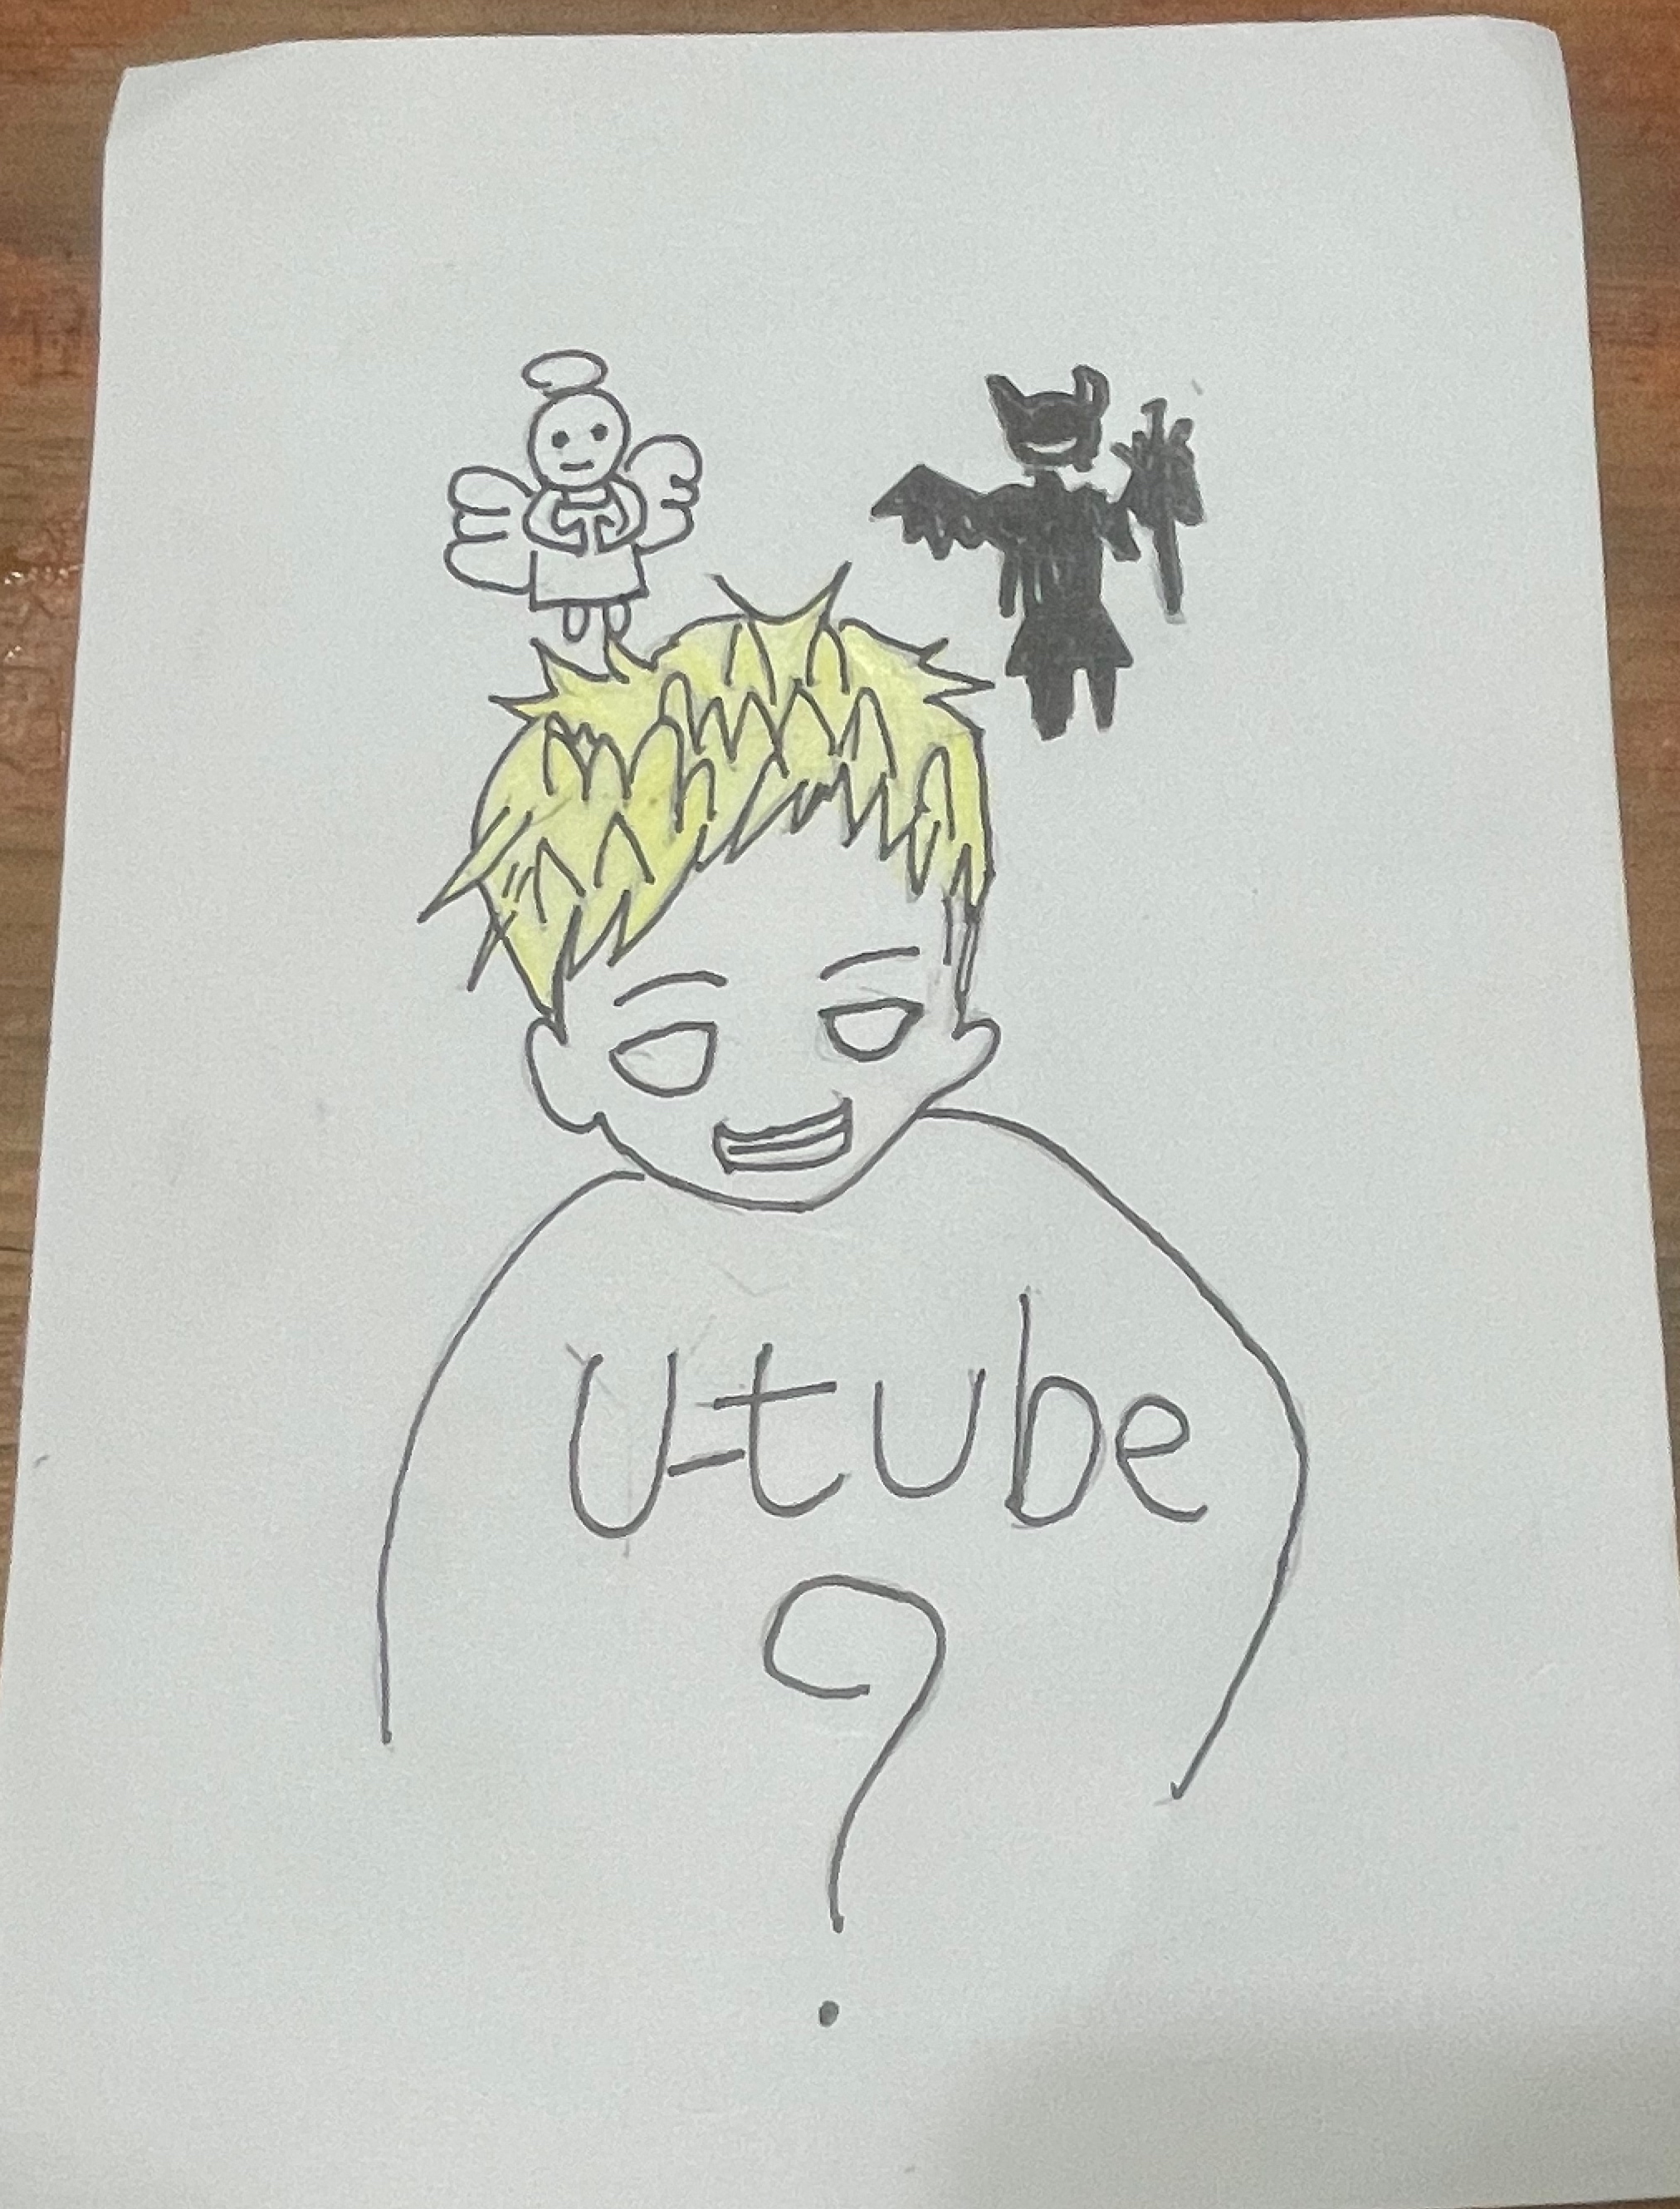 U-tube
?